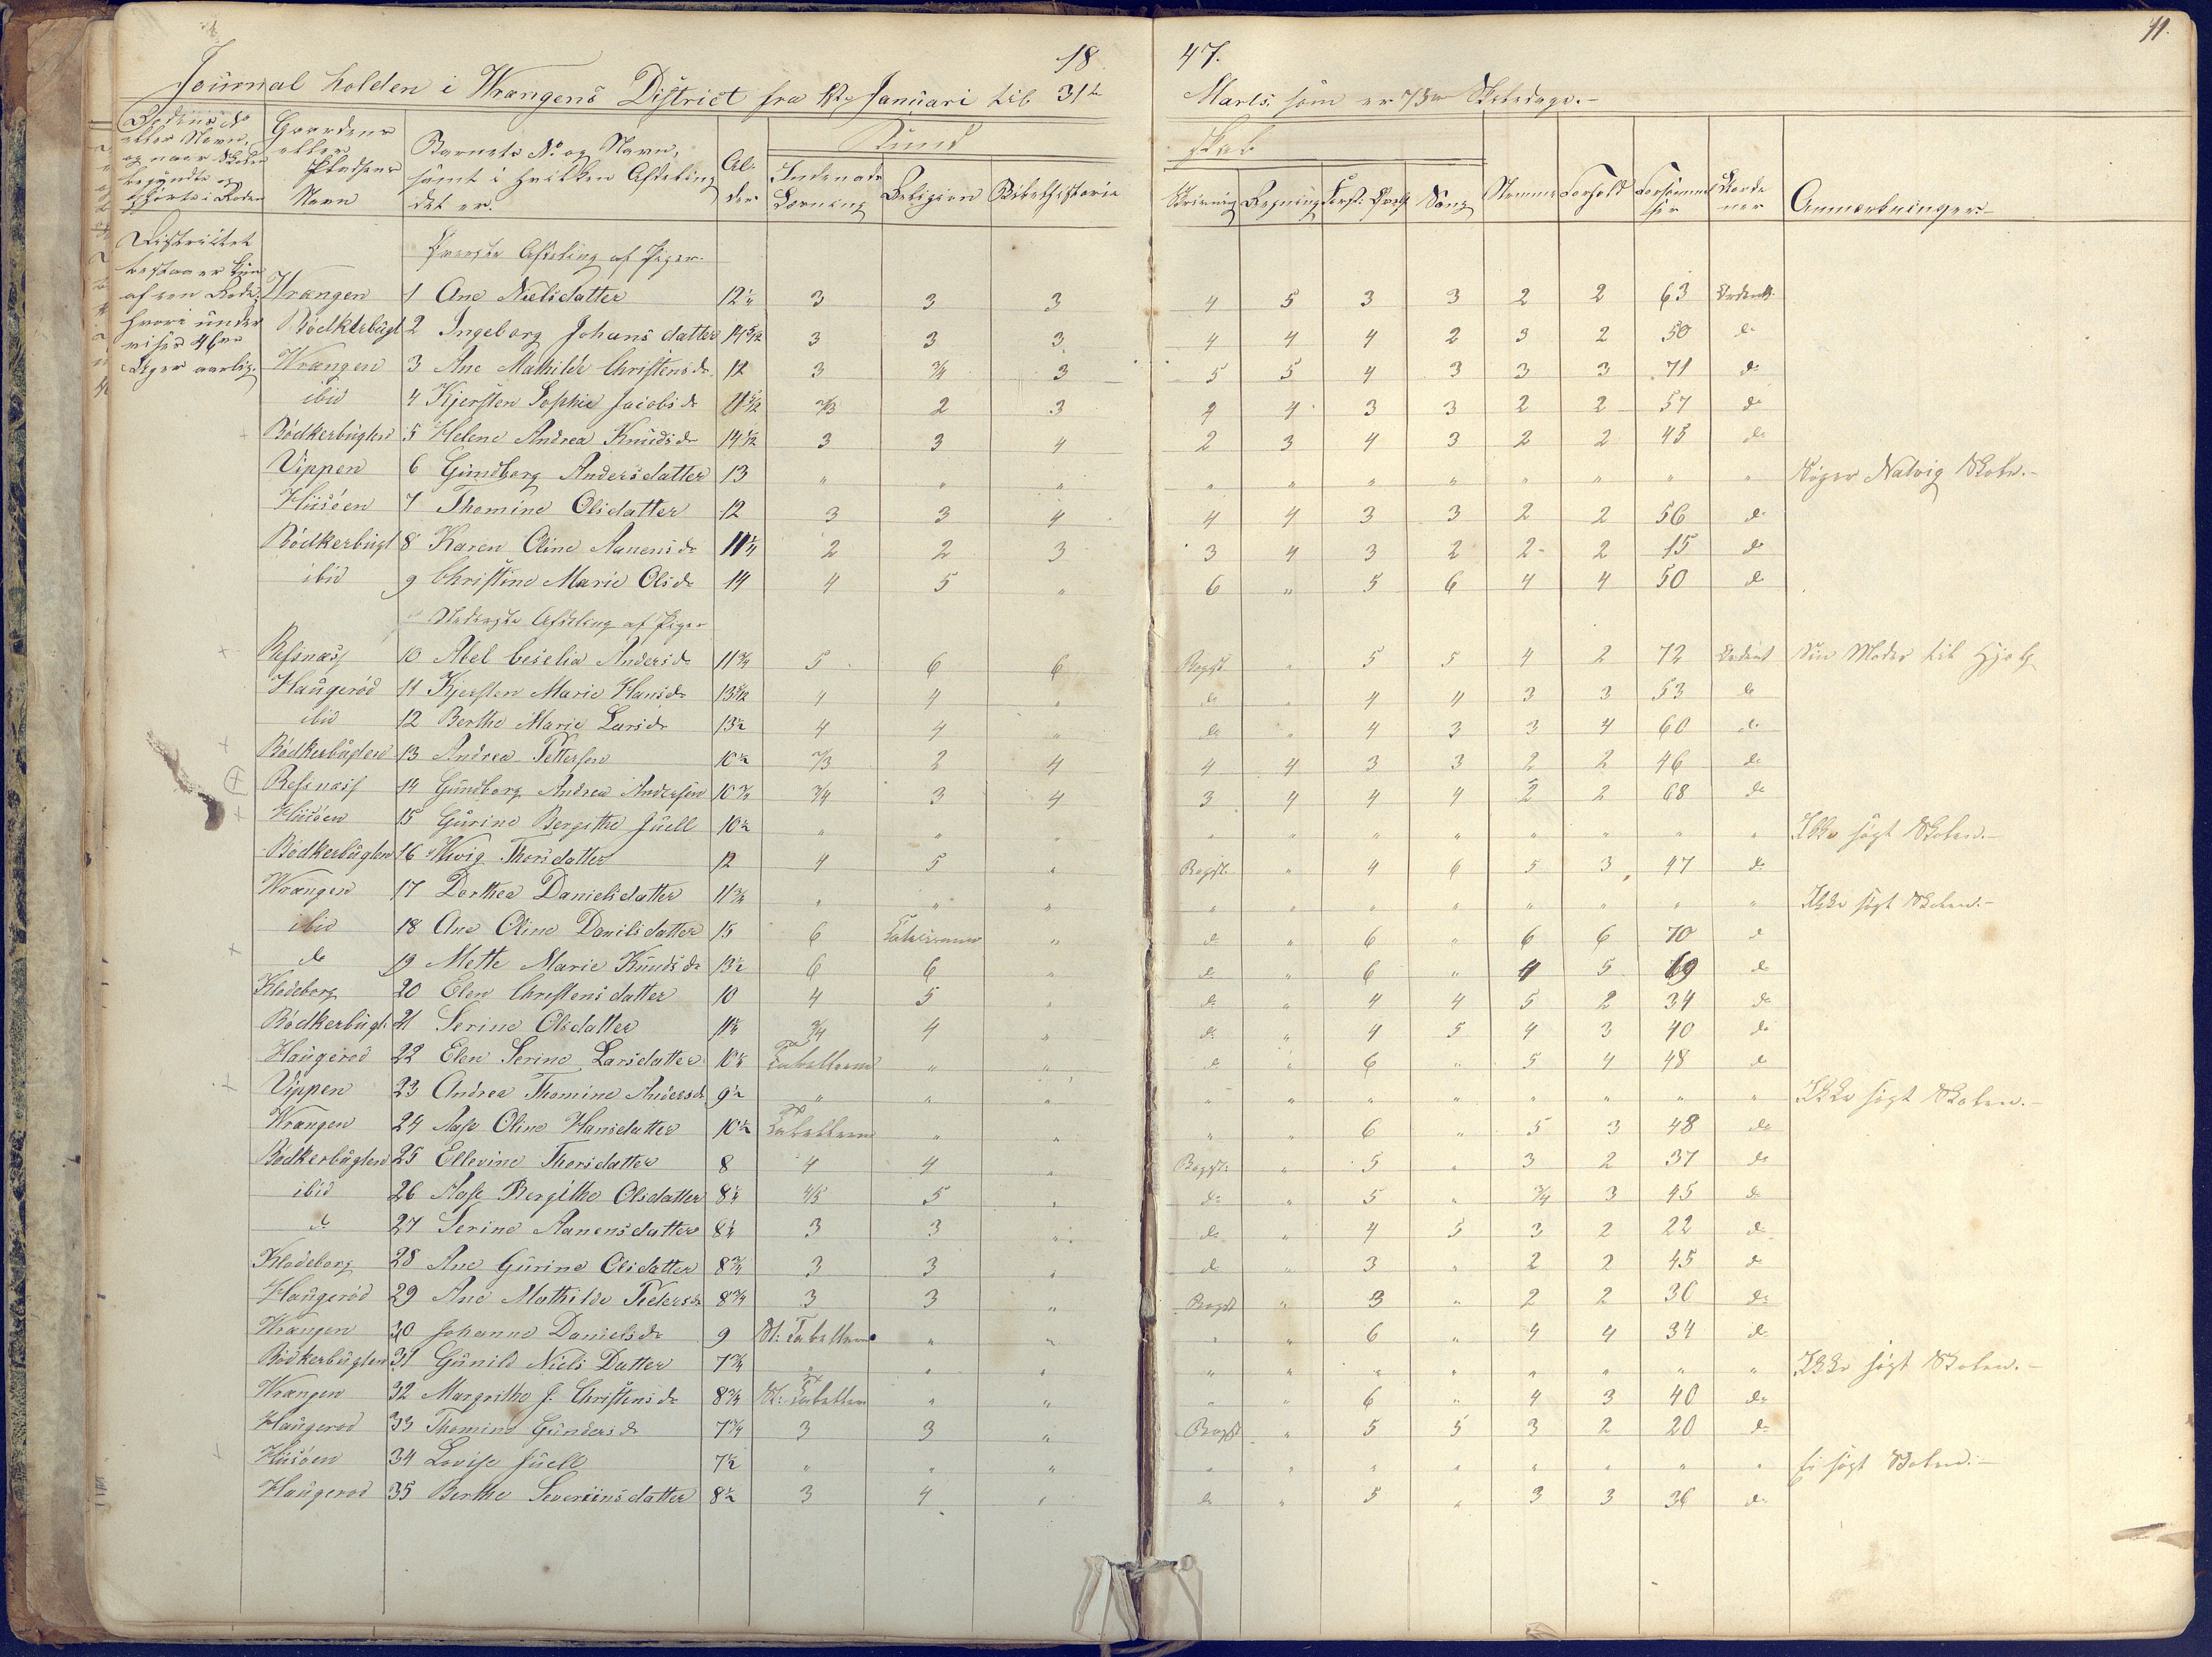 11.
18 47.
Journal holden i Wrangens District fra 1ste Januari til 31te Marts, som er 78 Skoledage.-
Rodens No eller Navn, og naar Skolen begyndte og i Roden
Gaardens eller Pladsens Navn
Barnets No og Navn, samt i hvilken Afdeling det er.
Alder
Kundskab
Indenads Læsning
Religion
Bibelhistorie
Skrivning
Regning
Forst: Øvels
Sang
Nemme
Forhold
Forsømmelser
Anmerkninger.-
Districtet bestaaer kun af een Rode, hvori under vises Uger aarlig.
Øverste Afdeling af Piger.
Wrangen 1 Ane Nielsdatter 12¼ 3 3 3 4 5 3 3 2 2 63 Ordentl.
Bödkerbugt 2 Ingeborg Johansdatter 14 5/12 3 3 3 4 4 4 2 3 2 50 do
Wrangen 3 Ane Mathilde Christensdr 12 3 3/4 3 5 5 4 3 3 3 71 do
ibid 4 Kjersten Sophie Jacobsdr 11 5/12 2/3 2 3 4 4 3 3 2 2 57 do
Bödkerbugten 5 Helene Andrea Knudsdr 14 1/12 3 3 4 2 3 4 3 2 2 45 do
Vippen 6 Gundborg Andersdatter 13 " " " " " " " " " " " Søger Natvig Skole.-
Husöen 7 Thomine Olsdatter 12 3 3 4 4 4 3 3 2 2 56 do
Bödkerbugt 8 Karen Oline Aanensdr 11¼ 2 2 3 3 4 3 2 2 2 15 do
ibid 9 Christine Marie Olsdr 14 4 5 " 6 " 5 6 4 4 50 do
Nederste Afdeling af Piger
Refsnæs 10 Abel Ceselia Andersdr 11¾ 5 6 6 Bogst " 5 5 4 2 72 Ordent Sin Moder til Hjelp
Haugeröd 11 Kjersten Marie Hansdr 13 5/12 4 4 " do " 4 4 3 3 53 do
ibid 12 Berthe Marie Larsdr 13½ 4 4 " do " 4 3 3 4 60 do
Bödkerbugten 13 Andrea Pettersen 10½ 2/3 2 4 4 4 3 3 2 2 46 do
Refsnæs 14 Gundborg Andrea Andersen 10¾ 3/4 3 4 3 4 4 4 2 2 68 do
Husöen 15 Gurine Bergithe Juell 10½ " " " " " " " " " " " Ikke søgt Skolen.-
Bödkerbugten 16 Thorsdatter 12 4 5 " Bogst. " 4 6 5 3 47 do
Wrangen 17 Dorthea Danielsdatter 11¾ " " " " " " " " " " " Ikke søgt Skolen.-
ibid 18 Ane Oline Danilsdatter 15 6 " do " 6 " 6 6 70 do
do 19 Mette Marie Knudsdr 13½ 6 6 " do " 6 " 4 5 69 do
Klodeborg 20 Elen Christensdatter 10 4 5 " do " 4 4 5 2 34 do
Bödkerbugt: 21 Serine Olsdatter 11½ 3/4 4 " do " 4 5 4 3 40 do
Haugeröd 22 Elen Serine Larsdatter 10½ Tabellerne " " do " 6 " 5 4 48 do
Vippen 23 Andrea Thomine Andersdr 9½ " " " " " " " " " " " Ikke søgt Skolen.-
Wrangen 24 Aase Oline Hansdatter 10½ Tabellerne " " " " 6 " 5 3 48 do
Bödkerbugten 25 Ellevine Thorsdatter 8 4 4 " Bogst: " 5 " 3 2 37 do
ibid 26 Aase Bergithe Olsdatter 8¼ 4/5 5 " do " 5 " 3/4 3 45 do
do 27 Serine Aanensdatter 8¼ 3 3 " do " 4 5 3 2 22 do
Klodeborg 28 Ane Gurine Olsdatter 8¾ 3 3 " do " 3 " 2 2 45 do
Haugeröd 29 Ane Mathilde Pedersdr 8¾ 3 3 " Bogst " 3 " 2 2 30 do
Wrangen 30 Johanne Danielsdr 9 St: Tabellerne " " " " 6 " 4 4 34 do
Bödkerbugten 31 Gunild Niels Datter 7¾ " " " " " " " " " " " Ikke søgt Skolen.-
Wrangen 32 Margrithe J. Christensdr 8¾ St: Tabellerne " " " " 6 " 4 3 40 do
Haugerod 33 Thomine Gundersdr 7¾ 3 3 " Bogst " 5 5 3 2 20 do
Husöen 34 Lovise Juell 7½ " " " " " " " " " " " Ei søgt Skolen.-
Haugerod 35 Berthe Severinsdatter 8½ 3 4 " do " 5 " 3 3 36 do